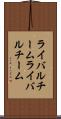 ライバルチ
ームライバ
ルチーム